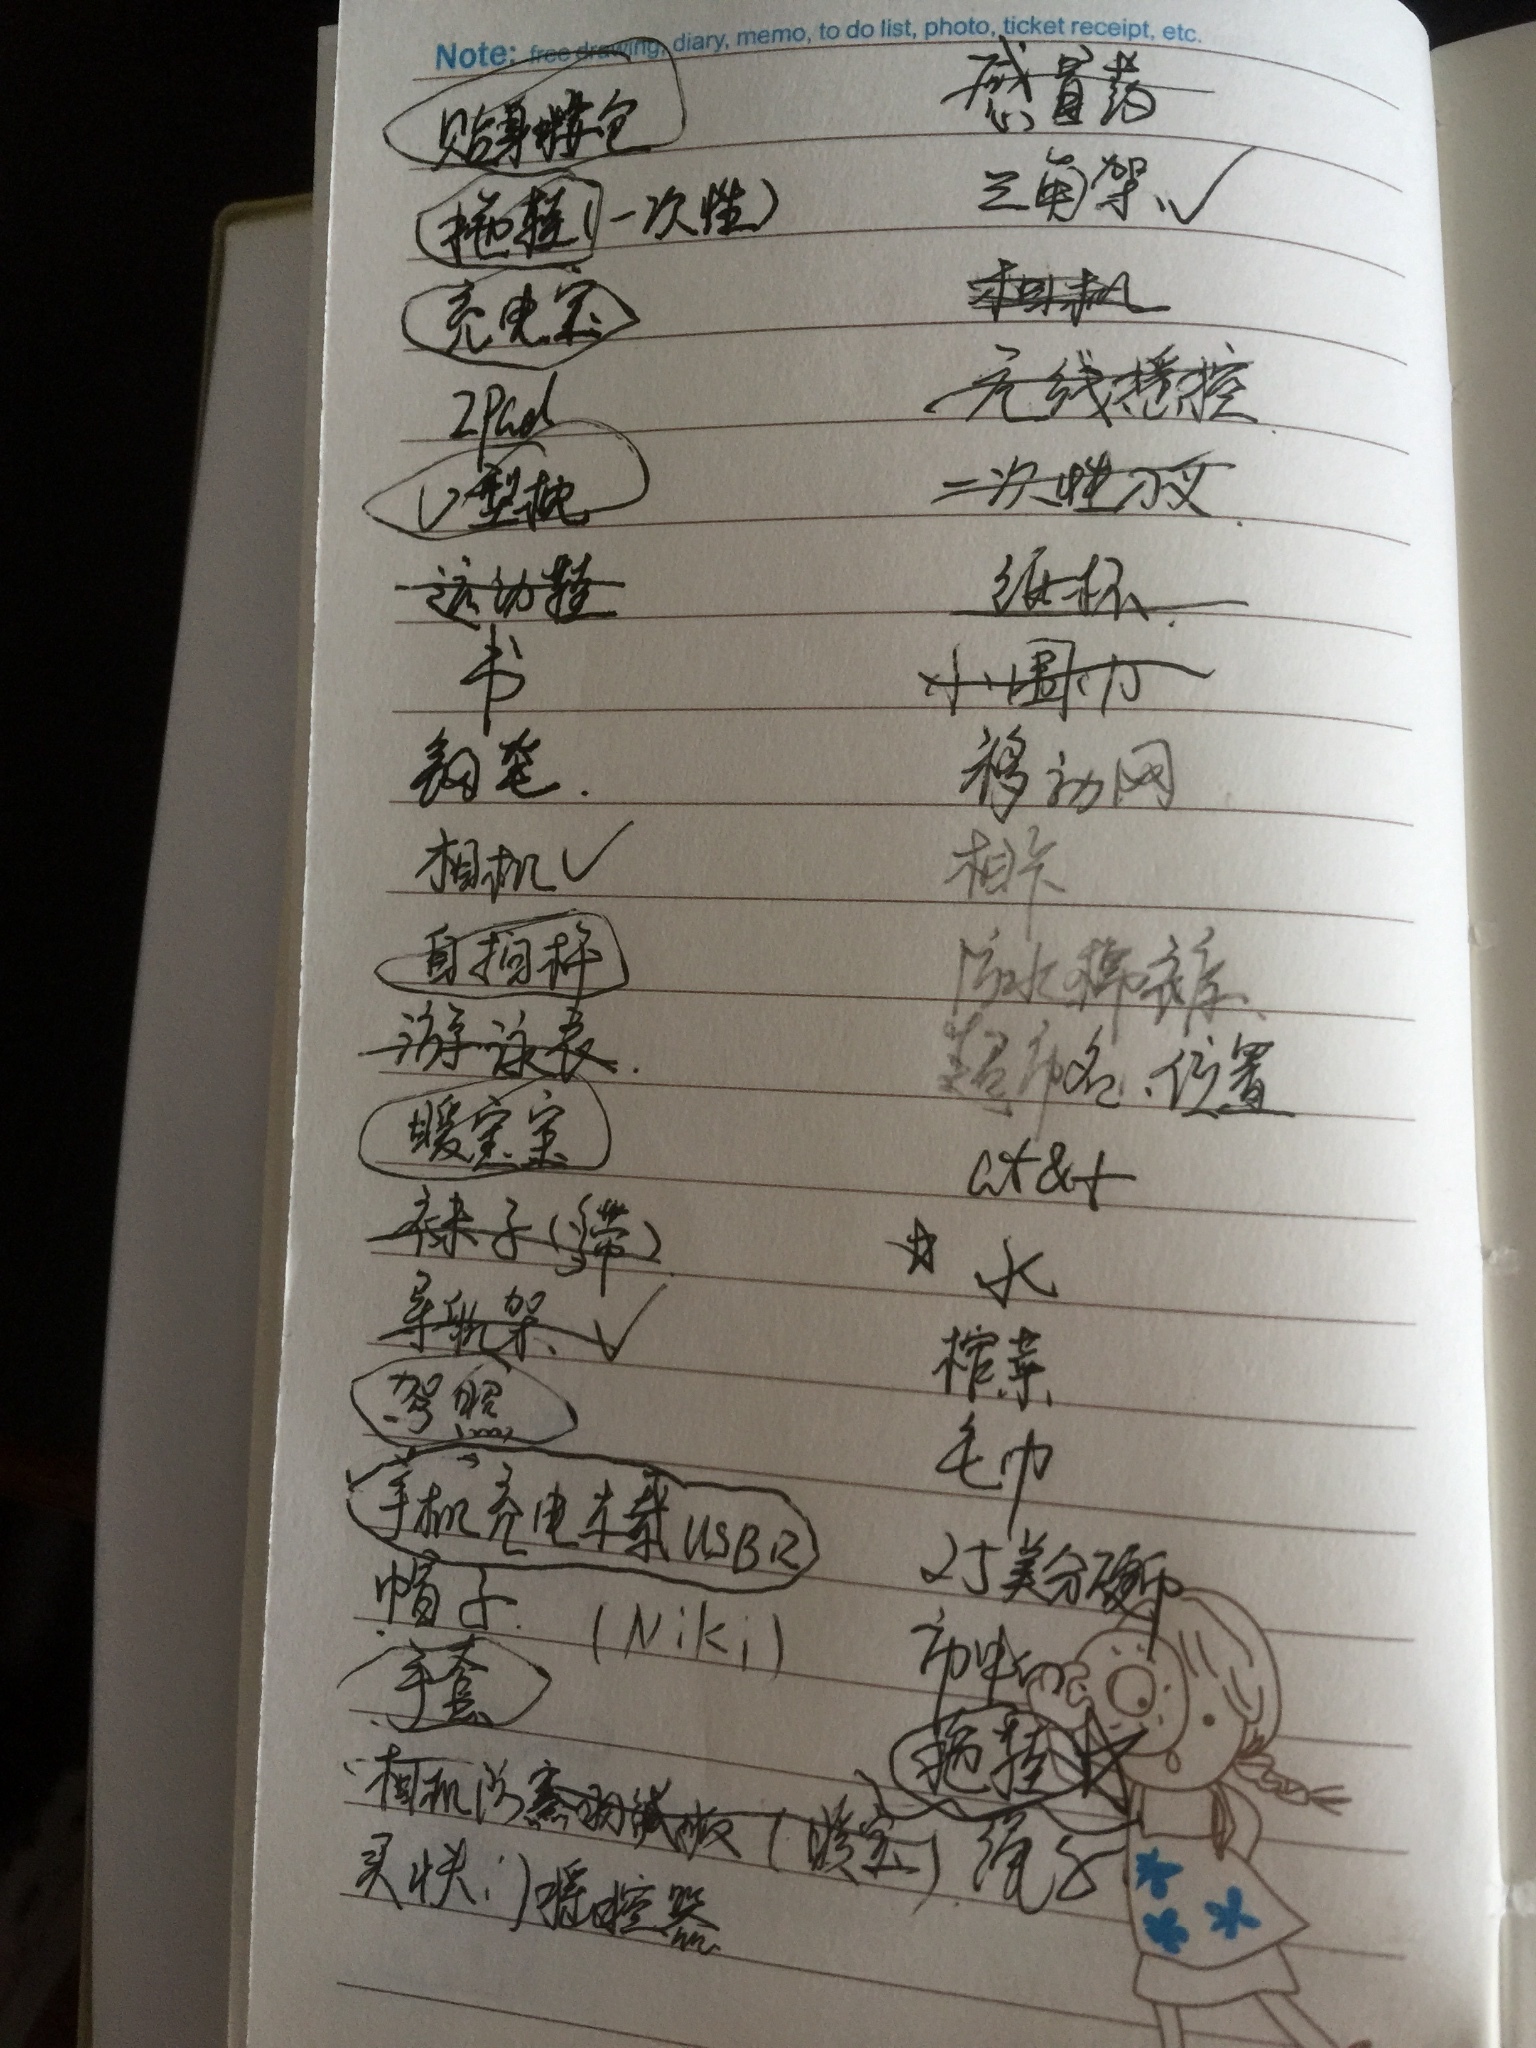 Note: free drawing, diary, memo, to do list, photo, ticket receipt, etc.
贴身腰包
拖鞋(一次性)
充电宝
IPad
U型枕
运动鞋
书
钢笔.
相机✓
自拍杆
游泳衣.
暖宝宝
袜子(多带)
导航架 ✓
驾照
手机充电车载USB口
帽子. (Niki)
手套
相机防寒 (暖宝)
买快门遥控器
感冒药
三角架 ✓
相机
无线摇控
一次性刀叉
纸杯
小圆刀
移动网
相卡
防水棉衣裤、
超市名、位置
at&t
☆ 水
榨菜
毛巾
25美分硬币
拖鞋☆
绳子